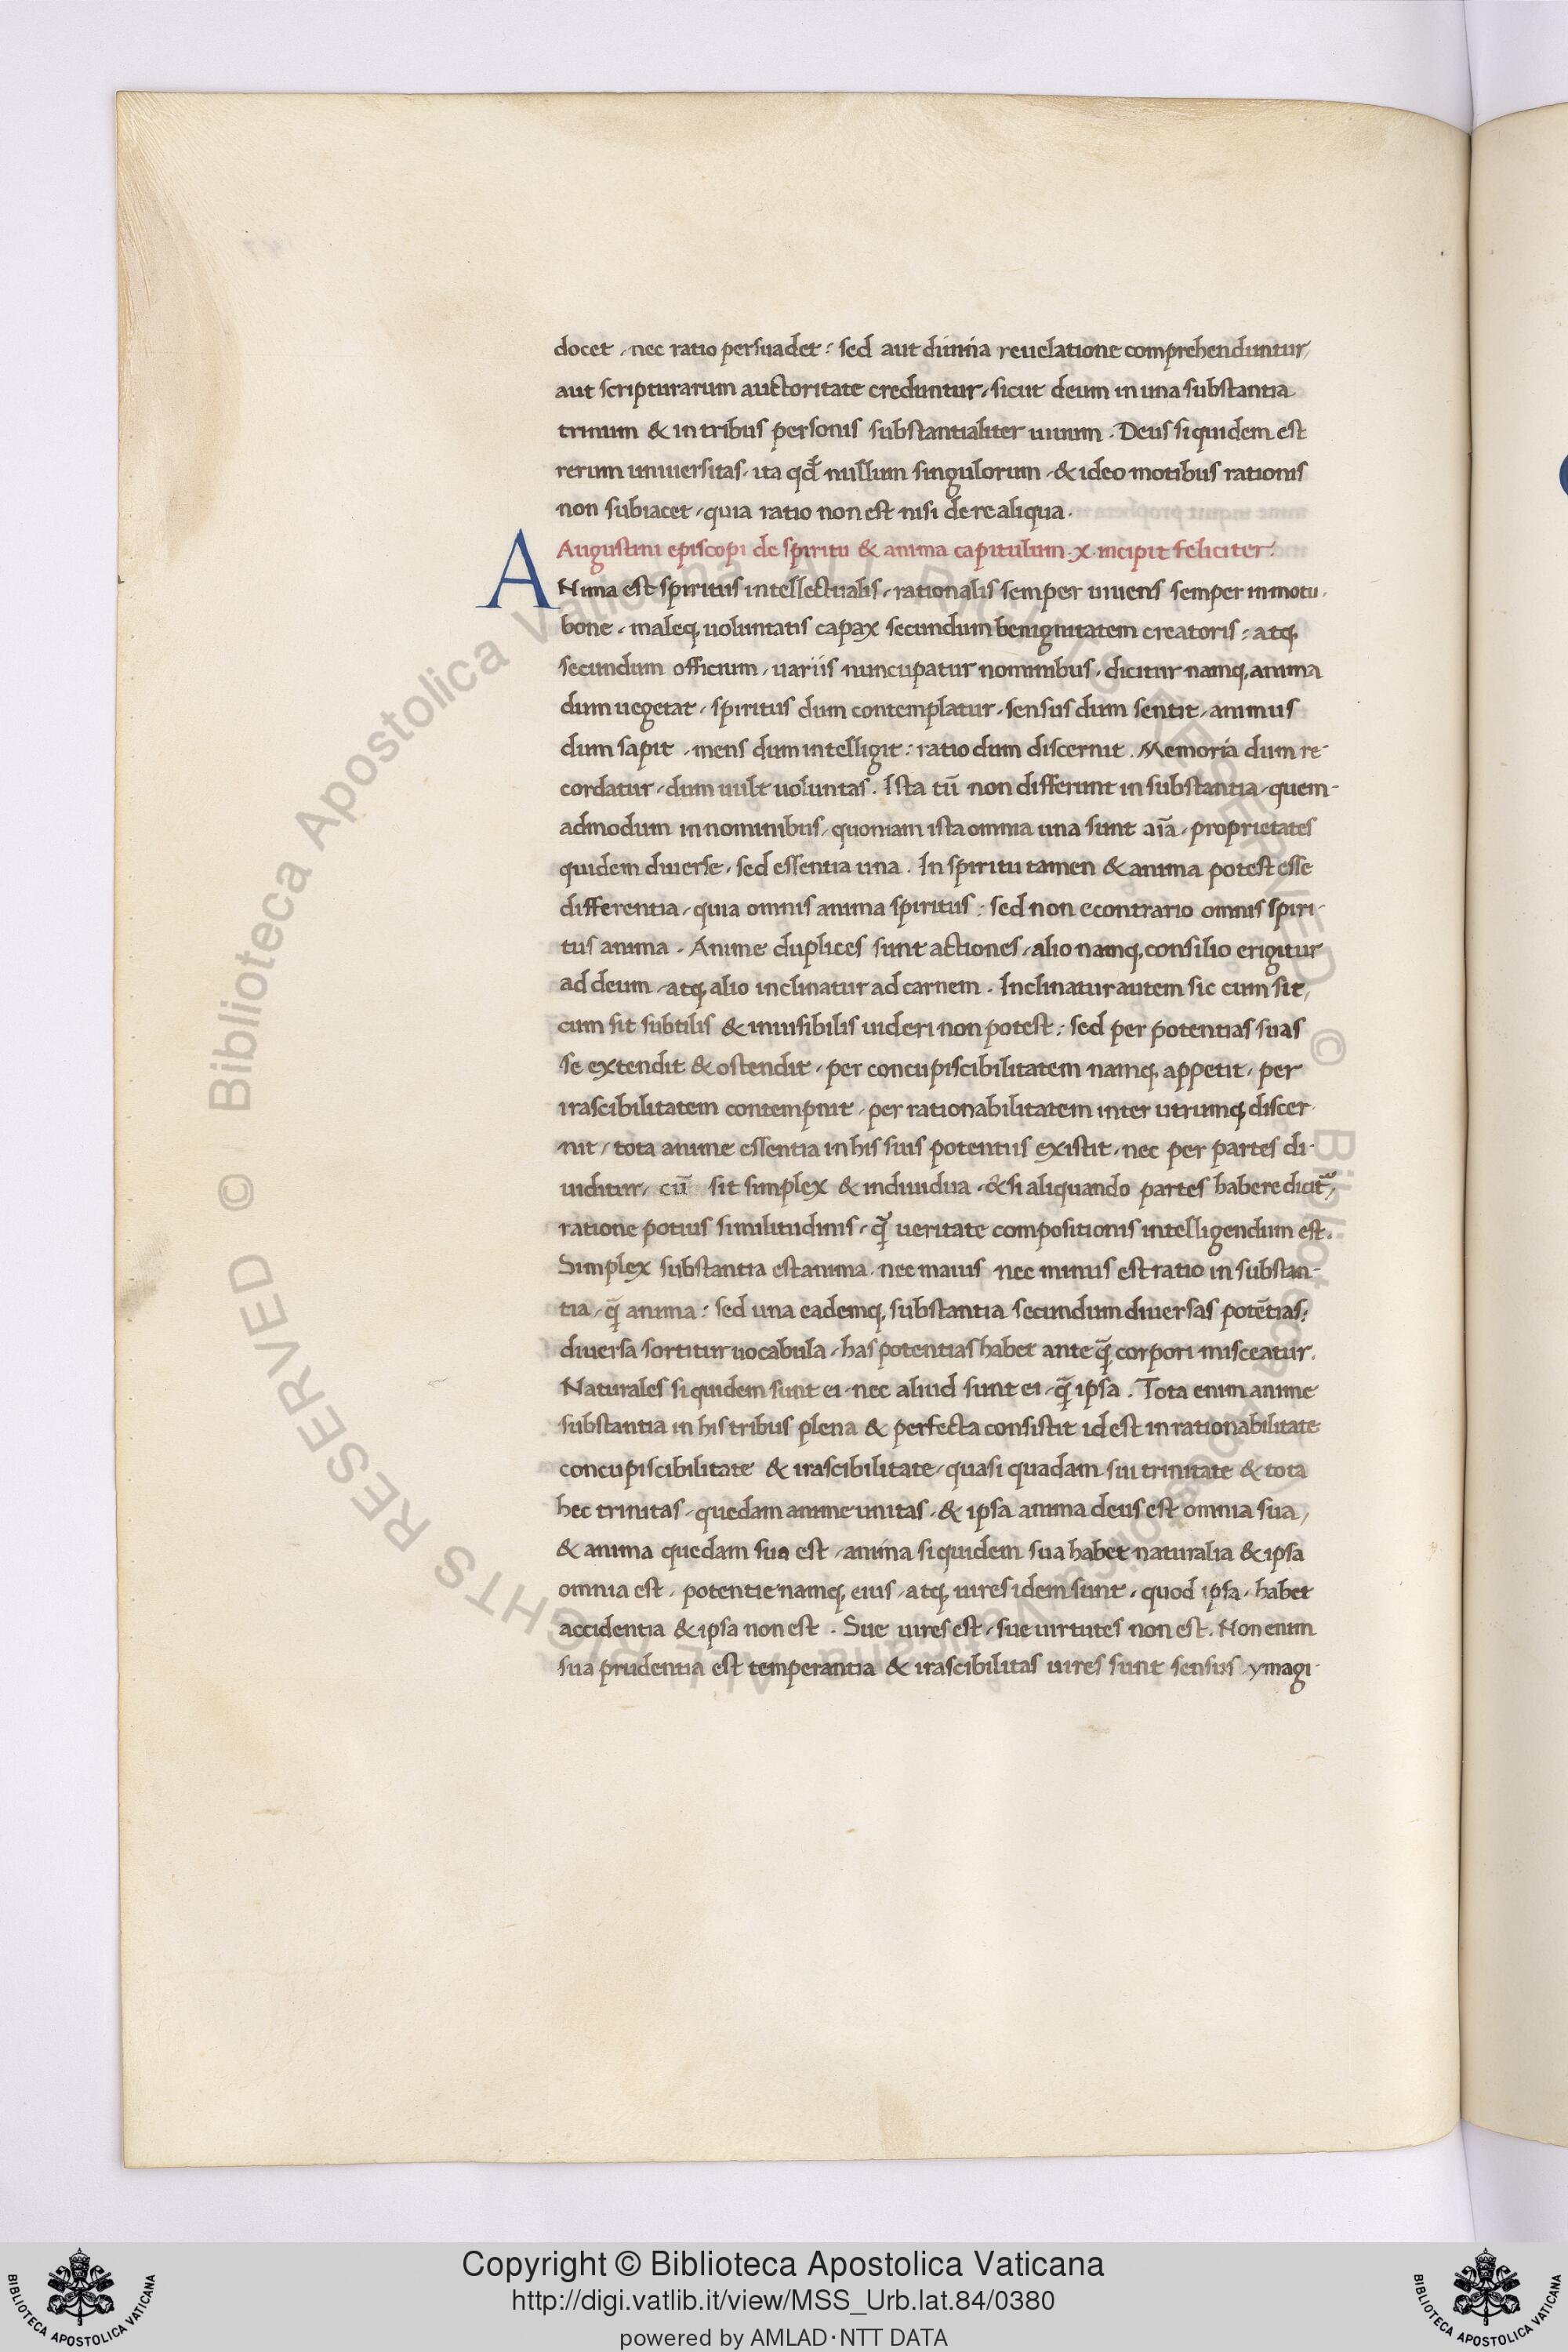 docet, nec ratio persuadet: sed aut diuina reuelatione comprehenduntur,
aut scripturarum auctoritate creduntur, sicut deum in una substantia
trinum & in tribus personis substantialiter unum. Deus siquidem est
rerum uniuersitas, ita qđ nullum singulorum, & ideo motibus rationis
non subiacet, quia ratio non est nisi de re aliqua.
Augustini episcopi de spiritu & anima capitulum .x. incipit feliciter:
ANima est spiritus intellectualis, rationalis semper uiuens semper in motu,
bone, maleq; uoluntatis capax secundum benignitatem creatoris: atq;
secundum officium, uariis nuncupatur nominibus, dicitur namq; anima
dum uegetat, spiritus dum contemplatur, sensus dum sentit, animus
dum sapit, mens dum intelligit: ratio dum discernit. Memoria dum re-
cordatur, dum uult uoluntas. Ista tū non differunt in substantia, quem-
admodum in nominibus, quoniam ista omnia una sunt aīa, proprietates
quidem diuerse, sed essentia una. In spiritu tamen & anima potest esse
differentia, quia omnis anima spiritus: sed non econtrario omnis spiri-
tus anima. Anime duplices sunt actiones, alio namq; consilio erigitur
ad deum, atq; alio inclinatur ad carnem. Inclinatur autem sic cum sit,
cum sit subtilis & inuisibilis uideri non potest: sed per potentias suas
se extendit & ostendit, per concupiscibilitatem namq; appetit, per
irascibilitatem contempnit, per rationabilitatem inter utrumq; discer-
nit, tota anime essentia in his suis potentiis existit, nec per partes di-
uiditur, cū sit simplex & indiuidua, & si aliquando partes habere dicit᷑,
ratione potius similitudinis, q̄ ueritate compositionis intelligendum est.
Simplex substantia est anima, nec maius nec minus est ratio in substan-
tia, q̄ anima: sed una eademq; substantia secundum diuersas potētias:
diuersa sortitur uocabula, has potentias habet ante q̄ corpori misceatur.
Naturales siquidem sunt ei, nec aliud sunt ei, q̄ ipsa. Tota enim anime
substantia in his tribus plena & perfecta consistit id est in rationabilitate
concupiscibilitate & irascibilitate, quasi quadam sui trinitate & tota
hec trinitas, quedam anime unitas, & ipsa anima deus est omnia sua,
& anima quedam sua est, anima siquidem sua habet naturalia & ipsa
omnia est, potentie namq; eius, atq; uires idem sunt, quod ipsa, habet
accidentia & ipsa non est. Sue uires est, sue uirtutes non est. Non enim
sua prudentia est temperantia & irascibilitas uires sunt sensus, ymagi-
© Biblioteca Apostolica Vaticana ALL RIGHTS RESERVED © Biblioteca Apostolica Vaticana ALL RIGHTS RESERVED
Copyright © Biblioteca Apostolica Vaticana
http://digi.vatlib.it/view/MSS_Urb.lat.84/0380
powered by AMLAD·NTT DATA
BIBLIOTECA APOSTOLICA VATICANA
BIBLIOTECA APOSTOLICA VATICANA